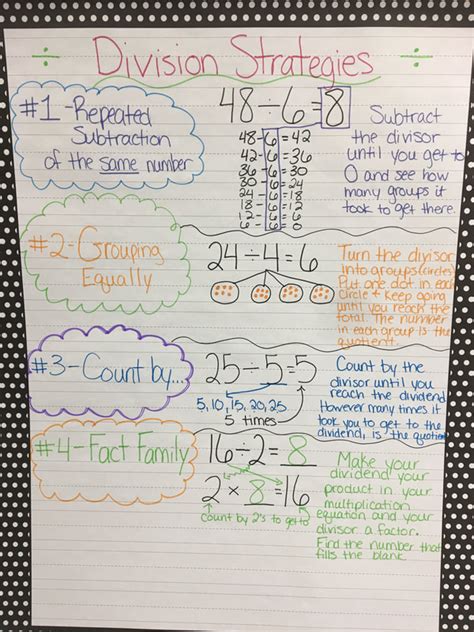 ÷ Division Strategies ÷
#1-Repeated
Subtraction
of the same number
48÷6=8
48-6=42
42-6=36
36-6=30
30-6=24
24-6=18
18-6=12
12-6=6
6-6=0
Subtract
the divisor
until you get to
0 and see how
many groups it
took to get there.
#2-Grouping
Equally
24÷4=6
Turn the divisor
into groups(circles)
Put one dot in each
circle + keep going
until you reach the
total. The number
in each group is the
quotient.
#3-Count by...
25÷5=5
5, 10, 15, 20, 25
5 times
Count by the
divisor until you
reach the dividend.
However many times it
took you to get to the
dividend, is the quotient
#4-Fact Family
16÷2=8
2×8=16
count by 2's to get to
Make your
dividend your
product in your
multiplication
equation and your
divisor a factor.
Find the number that
fills the blank